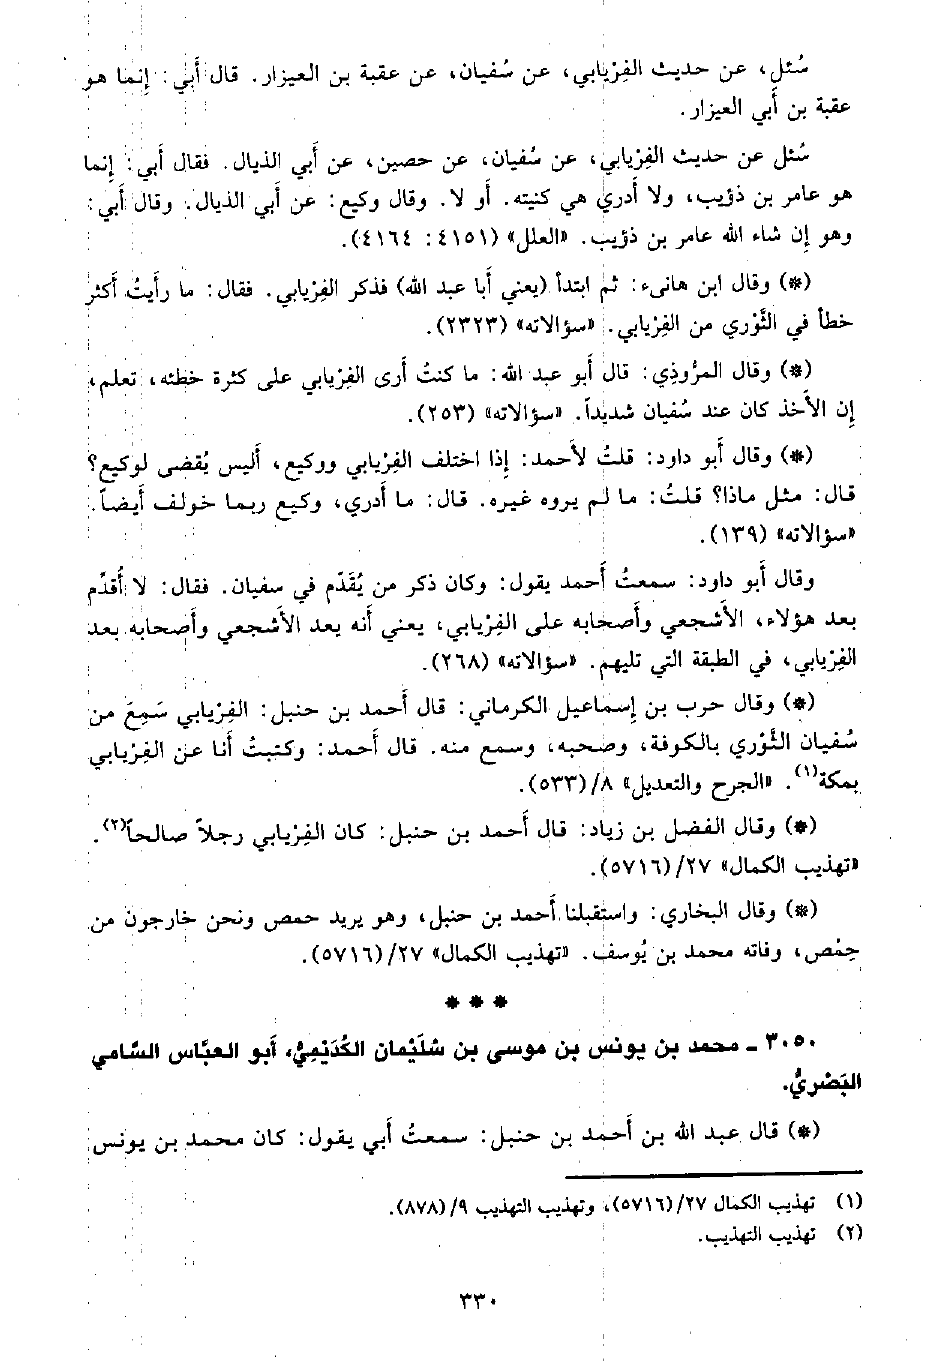 سُئل، عن حديث الفِرْيابي، عن سُفيان، عن عقبة بن العيزار. قال أَبي: إِنما هو
عقبة بن أَبي العيزار.
سُئل عن حديث الفِرْيابي، عن سُفيان، عن حصين، عن أَبي الذيال. فقال أَبي: إِنما
هو عامر بن ذؤيب، ولا أَدري هي كنيته. أو لا. وقال وكيع: عن أَبي الذيال. وقال أَبي:
وهو إن شاء الله عامر بن ذؤيب. «العلل» (٤١٥١: ٤١٦٤).
(*) وقال ابن هانىء: ثم ابتدأ (يعني أَبا عبد الله) فذكر الفِرْيابي. فقال: ما رأَيتُ أَكثر
خطأ في الثَّوْري من الفِرْيابي. «سؤالاته» (٢٣٢٣).
(*) وقال المرُّوذِي: قال أَبو عبد الله: ما كنتُ أَرى الفِرْيابي على كثرة خطئه، تعلم،
إِن الأَخذ كان عند سُفيان شديداً. «سؤالاته» (٢٥٣).
(*) وقال أَبو داود: قلتُ لأَحمد: إِذا اختلف الفِرْيابي ووكيع، أَليس يُقضى لوكيع؟
قال: مثل ماذا؟ قلتُ: ما لم يروه غيره. قال: ما أَدري، وكيع ربما خولف أَيضاً.
«سؤالاته» (١٣٩).
وقال أَبو داود: سمعتُ أَحمد يقول: وكان ذكر من يُقَدّم في سفيان. فقال: لا أُقدّم
بعد هؤلاء، الأَشجعي وأَصحابه على الفِرْيابي، يعني أَنه يعد الأَشجعي وأَصحابه بعد
الفِرْيابي، في الطبقة التي تليهم. «سؤالاته» (٢٦٨).
(*) وقال حرب بن إِسماعيل الكرماني: قال أَحمد بن حنبل: الفِرْيابي سَمِعَ من
سُفيان الثَّوْري بالكوفة، وصحبه، وسمع منه. قال أَحمد: وكتبتُ أَنا عن الفِرْيابي
بمكة(١). «الجرح والتعديل» ٨/(٥٣٣).
(*) وقال الفضل بن زياد: قال أَحمد بن حنبل: كان الفِرْيابي رجلاً صالحاً(٢).
«تهذيب الكمال» ٢٧/(٥٧١٦).
(*) وقال البخاري: واستقبلنا أَحمد بن حنبل، وهو يريد حمص ونحن خارجون من
حِمْص، وفاته محمد بن يُوسف. «تهذيب الكمال» ٢٧/(٥٧١٦).
* * *
٣٠٥٠ ـ محمد بن يونس بن موسى بن سُلَيْمان الكُدَيْمِيُّ، أَبو العبَّاس السَّامي
البَصْريُّ.
(*) قال عبد الله بن أَحمد بن حنبل: سمعتُ أَبي يقول: كان محمد بن يونس
(١) تهذيب الكمال ٢٧/(٥٧١٦)، وتهذيب التهذيب ٩/(٨٧٨).
(٢) تهذيب التهذيب.
٣٣٠